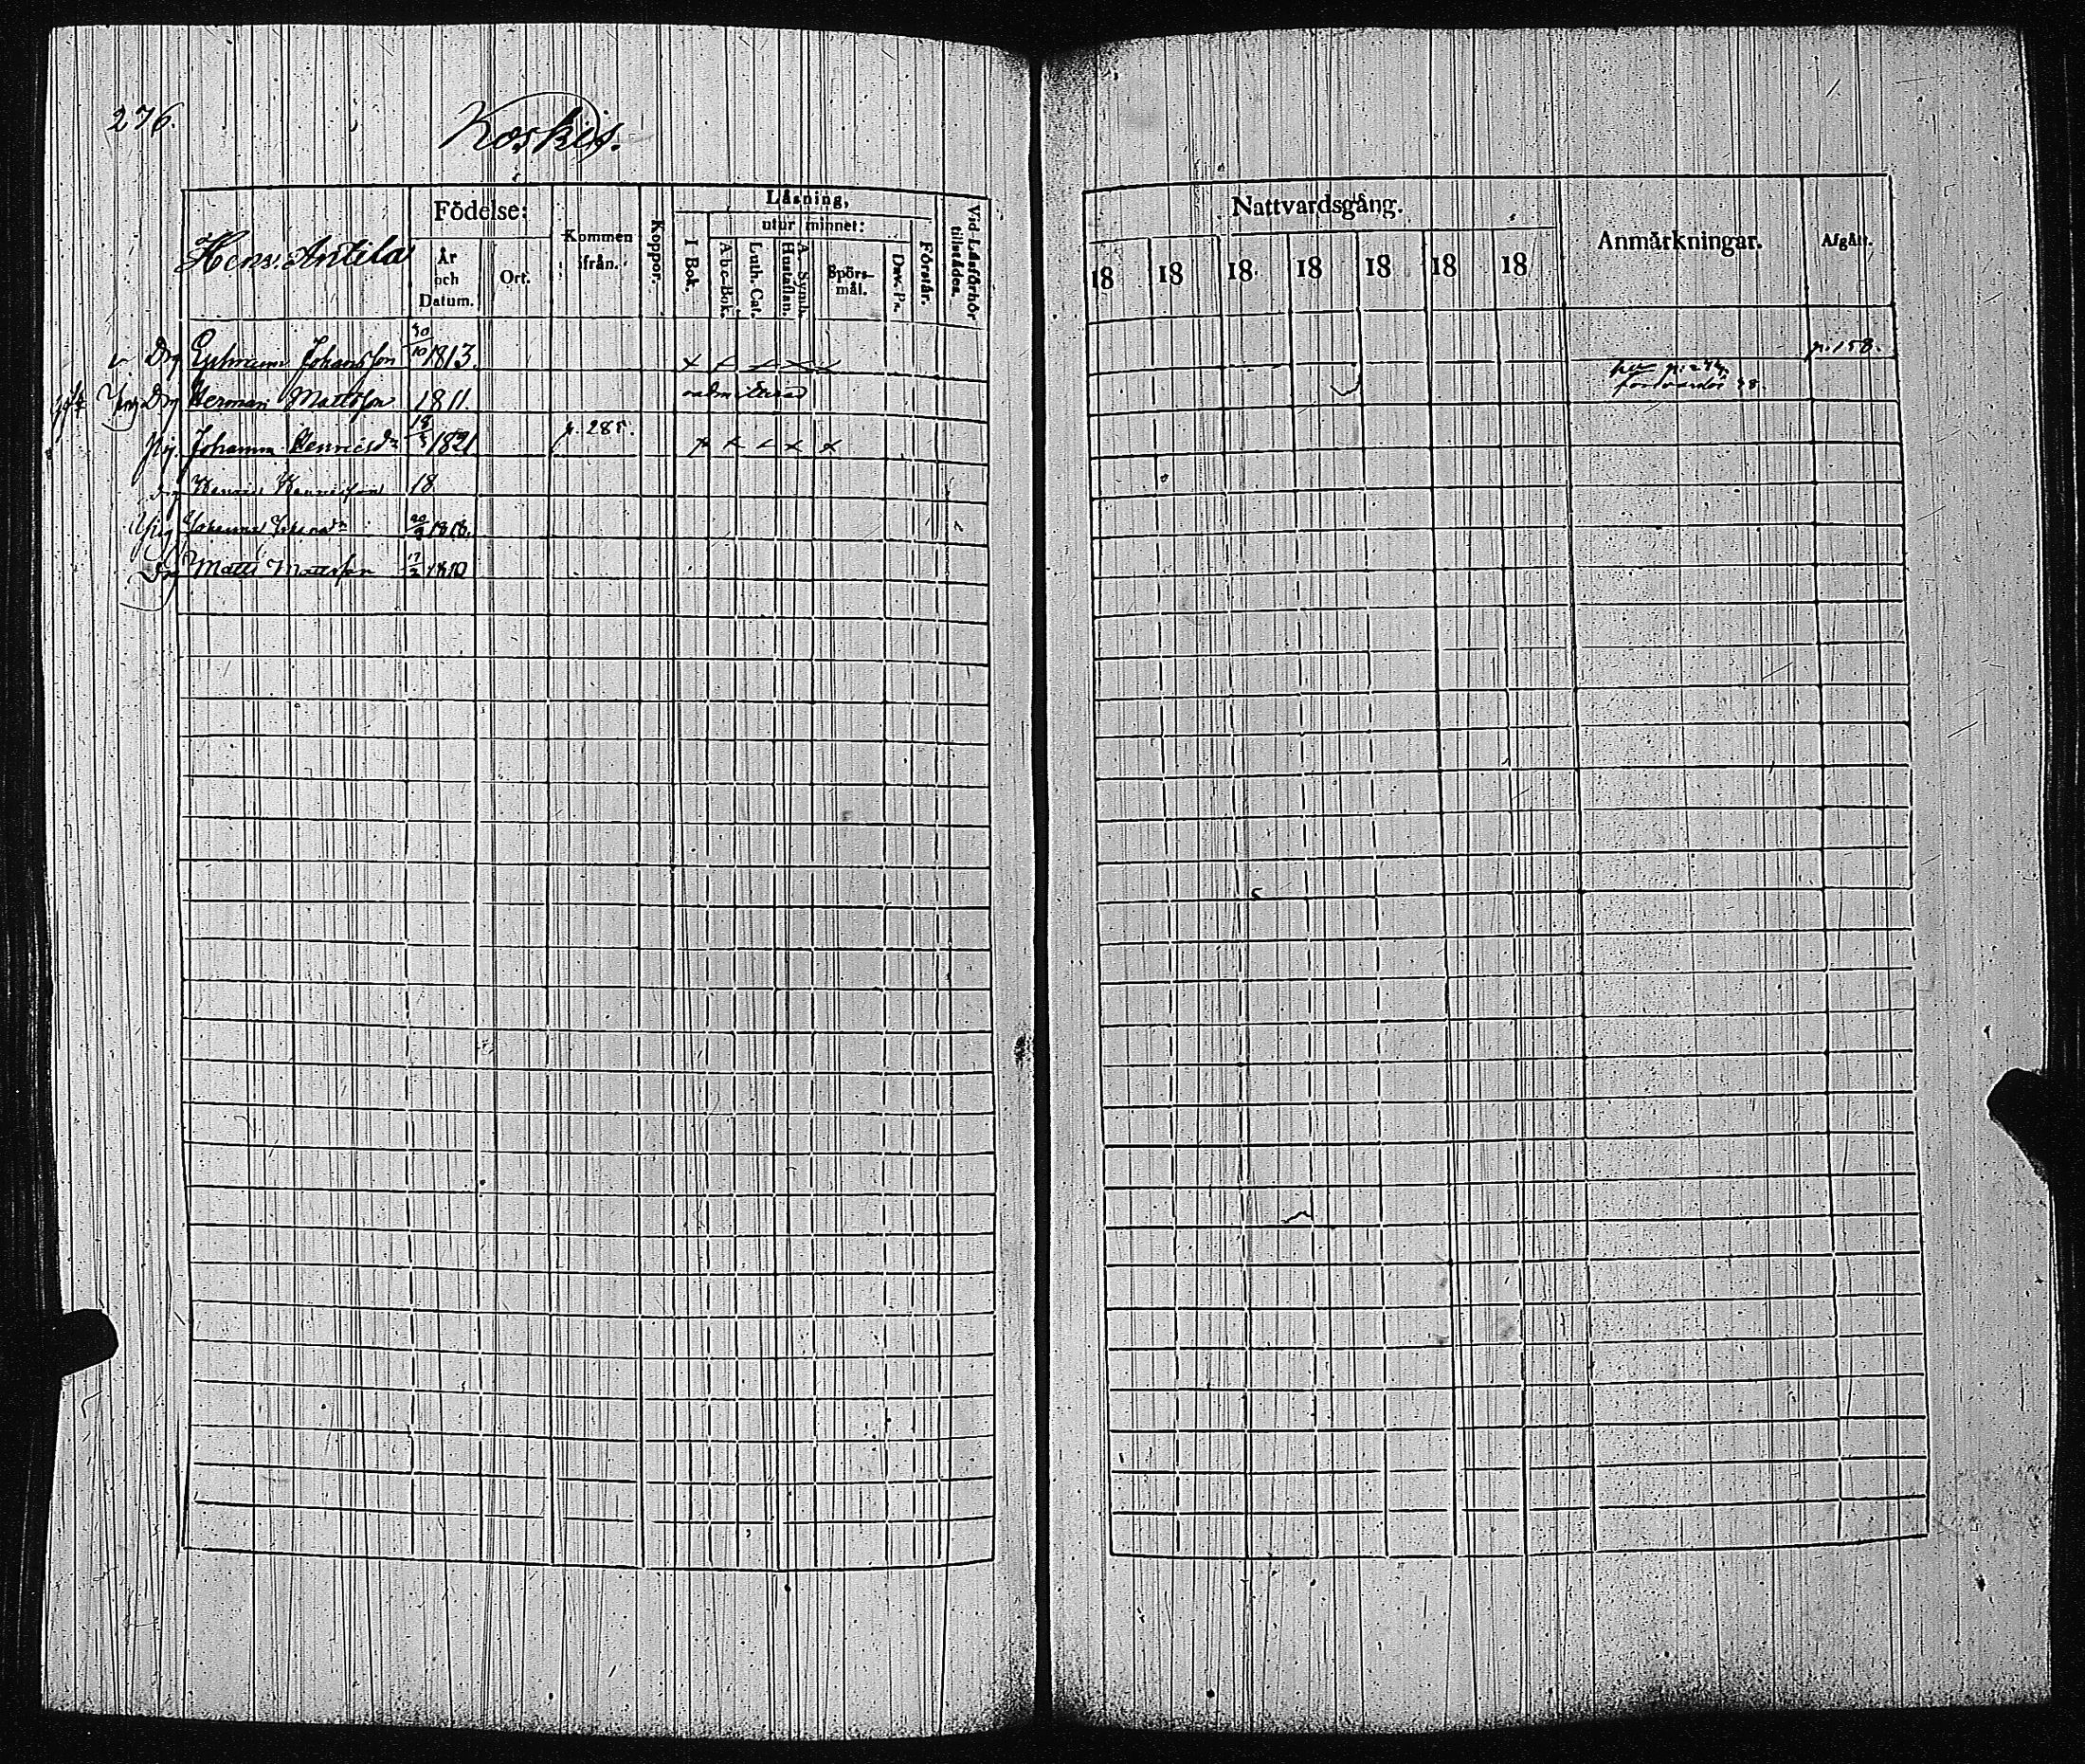 276.
Koskis.
Hens. Antila
Födelse:
År och Datum.
Ort.
Kommen ifrån.
Koppor.
Läsning,
utur minnet:
I Bok.
A b c-Bok.
Luth. Cat.
A. Symb. Hustaflan.
Spörs-mål.
Dav. Ps.
Förstår.
Vid Läsförhör tillstädes.
Nattvardsgång.
18 18 18 18 18 18 18
Anmärkningar.
Afgått.
v Drg Ephraim Johansson 30/10 1813. x x x x x p. 158.
Drg Herman Mattsson 1811. admitterad
Pig. Johanna Henricsdr 18/3 1821 p. 285. x x x x x
Drg Henric Henricsson 18
Pig Johanna 20/9 1818.
Drg Matts Mattsson 17/2 1810